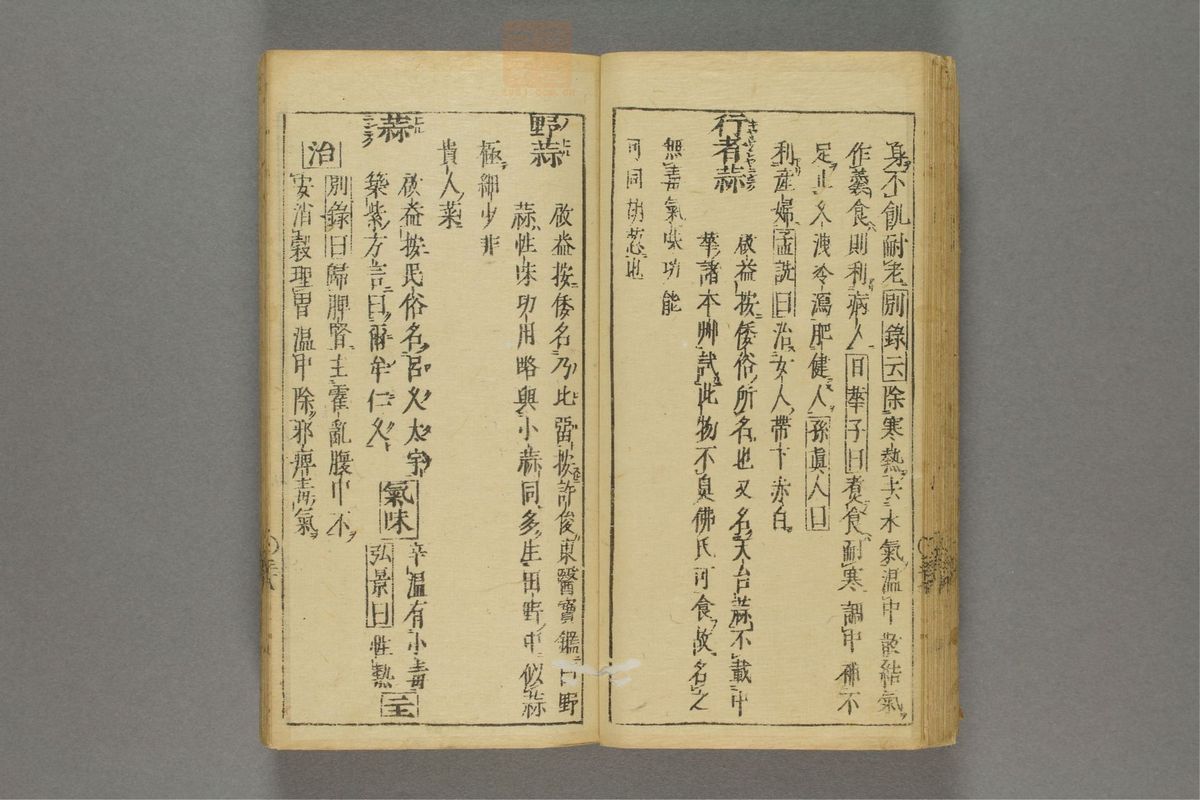 身不飢耐老別錄云除寒熱去水氣溫中散結氣
作羹食則利病人日華子曰煑食耐寒調中補不
足止久洩冷瀉肥健人孫眞人曰
利產婦孟詵曰治女人帶下赤白
行者蒜
啟益按倭俗所名也又名天台蒜不載中
華諸本艸試此物不臭佛氏可食故名之
無毒氣味功能
可同胡葱也
野蒜
啟益按倭名乃比畱按許俊東醫寶鑑曰野
蒜性味功用略與小蒜同多生田野中似蒜
極細少非
貴人藥
蒜
啟益按民俗名呂又太宇氣味辛溫有小毒
築紫方言曰爾牟仁久弘景曰性熱主
治別錄曰歸脾腎主霍亂腹中不
安消穀理胃溫中除邪痺毒氣